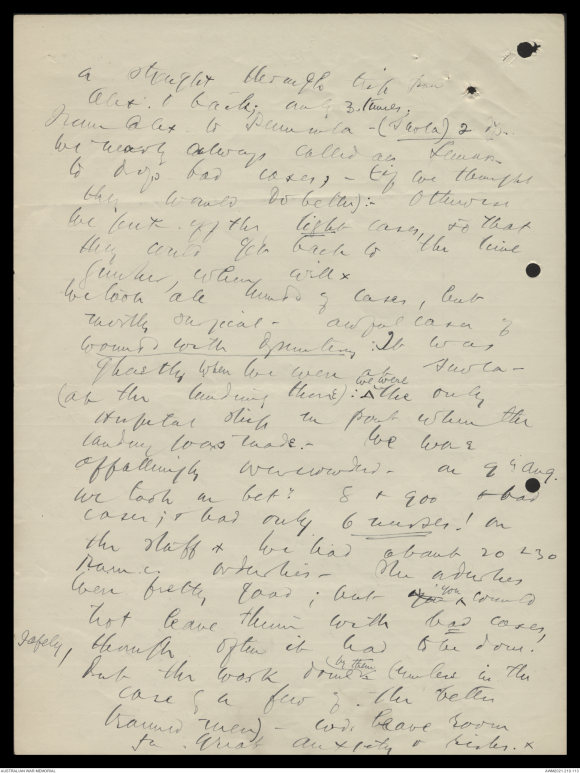 a straight through trip from
Alex. & back; only 3 times.
From Alex. to Peninsula - (Suvla) 2
We nearly always called at Lemnos
to drop bad cases, - (if we thought
they would do better) :- Otherwise
We put off the light cases, so that
they could get back to the line
quicker, when well x
We took all kinds of cases, but
mostly surgical - awful cases of
wounds with Dysentery. It was
Ghastly when we were at Suvla -
(at the landing there) : we were the only
Hospital ship in port when the
landing was made. - We were
appallingly overcrowded - on 9th Aug.
we took in betn 8 & 900 bad
cases; & had only 6 nurses! on
the staff x We had about 20 - 30
R.A.M.C. orderlies - The orderlies
were pretty good; but you could
not leave them with bad cases,
safely, though often it had to be done.
But the work done by them (unless in the
case of a few of the better
trained men) - wd. leave room
for great anxiety & risks. x
AUSTRALIAN WAR MEMORIAL